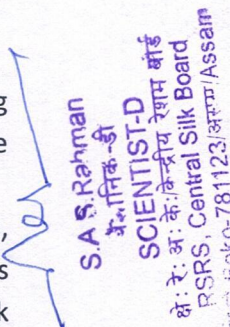 S.A.S.Rahman
वैज्ञानिक-डी
SCIENTIST-D
क्षे: रे: अ: के:केन्द्रीय रेशम बोर्ड
RSRS, Central Silk Board
781123/असम/Assam